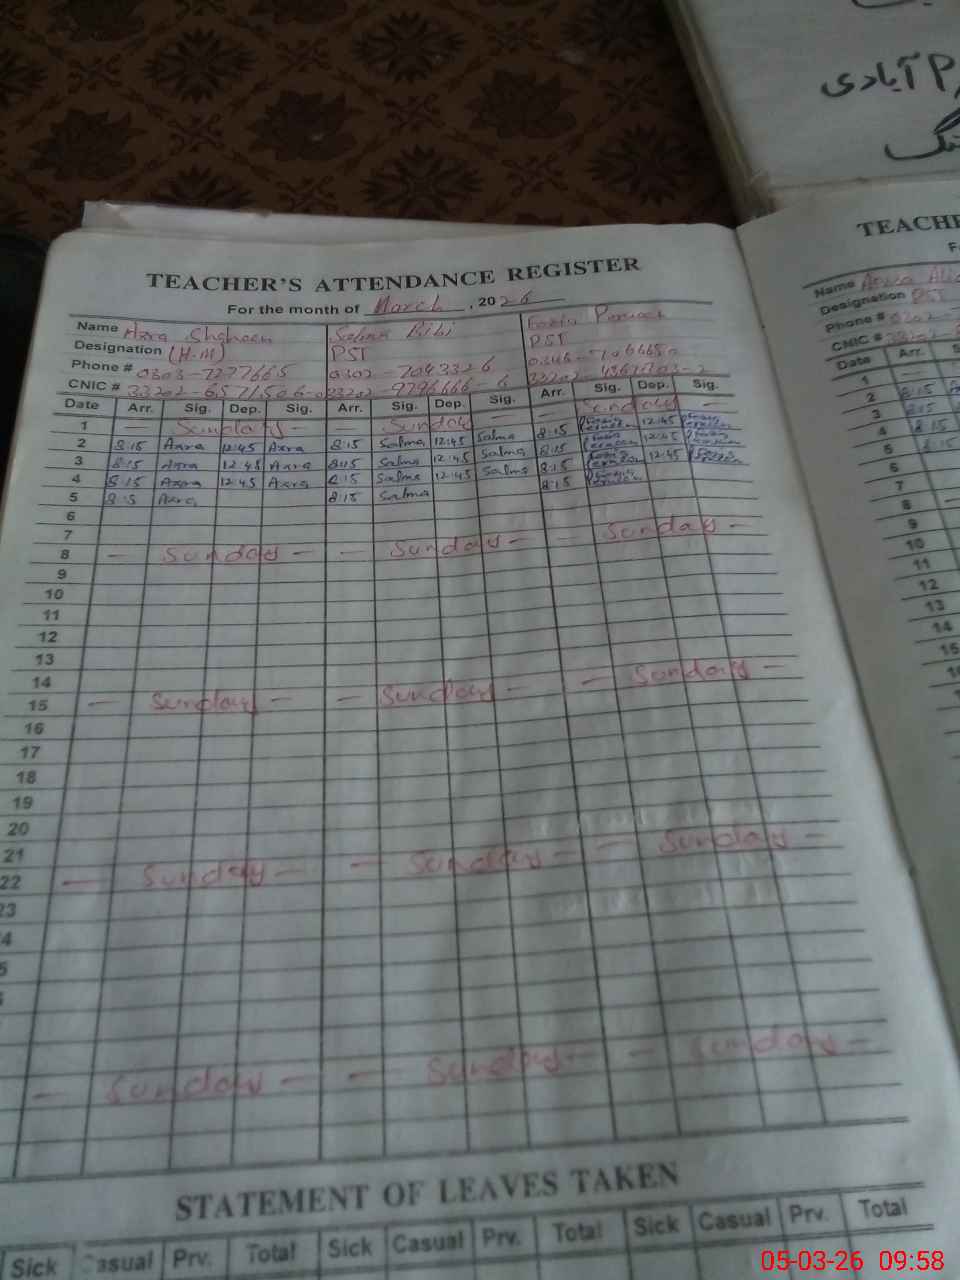 آبادی
TEACHER'S ATTENDANCE REGISTER
For the month of March, 2026
Name Azra Shaheen Salma Bibi
Designation (H-M) PST PST
Phone # 0303-7277665 0302-7043326
CNIC #
Date Arr. Sig. Dep. Sig. Arr. Sig. Dep. Sig. Arr. Sig. Dep. Sig.
1 — Sunday — — Sunday — — Sunday —
2 8:15 Azra 12:45 Azra 8:15 Salma 12:45 Salma 8:15 12:45
3 8:15 Azra 12:45 Azra 8:15 Salma 12:45 Salma 8:15 12:45
4 8:15 Azra 12:45 Azra 8:15 Salma 12:45 Salma 8:15 12:45
5 8:15 Azra 8:15 Salma 8:15
6
7
8 — Sunday — — Sunday — — Sunday —
9
10
11
12
13
14
15 — Sunday — — Sunday — — Sunday —
16
17
18
19
20
21
22 — Sunday — — Sunday — — Sunday —
23
— Sunday — — Sunday — — Sunday —
STATEMENT OF LEAVES TAKEN
Sick Casual Prv. Total Sick Casual Prv. Total Sick Casual Prv. Total
TEACHE
Name
Designation PST
Phone #
CNIC #
Date Arr.
1
2 8:15
3 8:15
4 8:15
5 8:15
6
7
8
9
10
11
12
13
14
15
05-03-26 09:58